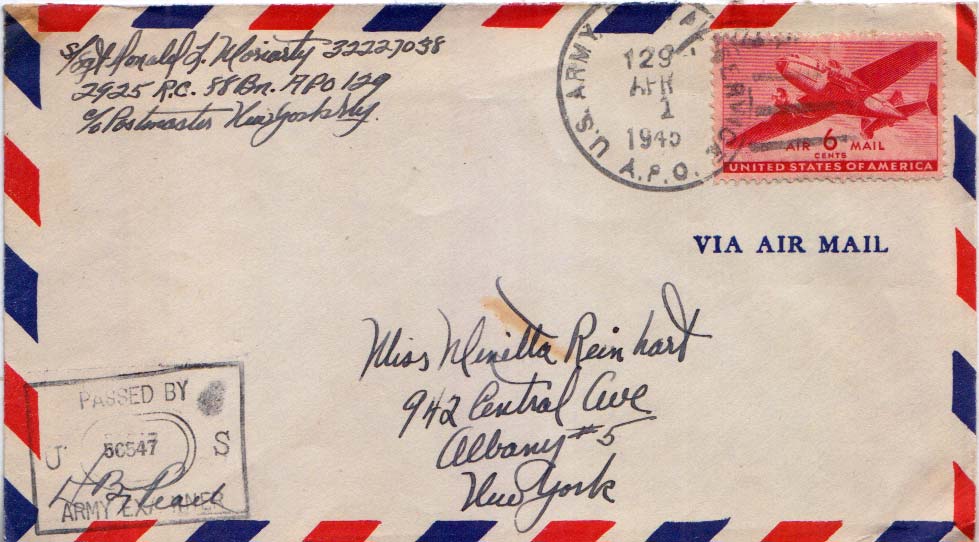 S/Sgt Ronald L. Moriarty 32227038
2925 R.C. 88 Bn. APO 129
c/o Postmaster New York N.Y.
U.S. ARMY
A.P.O.
129
APR
1
1945
AIR 6 MAIL
CENTS
UNITED STATES OF AMERICA
VIA AIR MAIL
Miss Minetta Reinhart
942 Central Ave
Albany #5
New York
PASSED BY
U 50547 S
ARMY EXAMINER